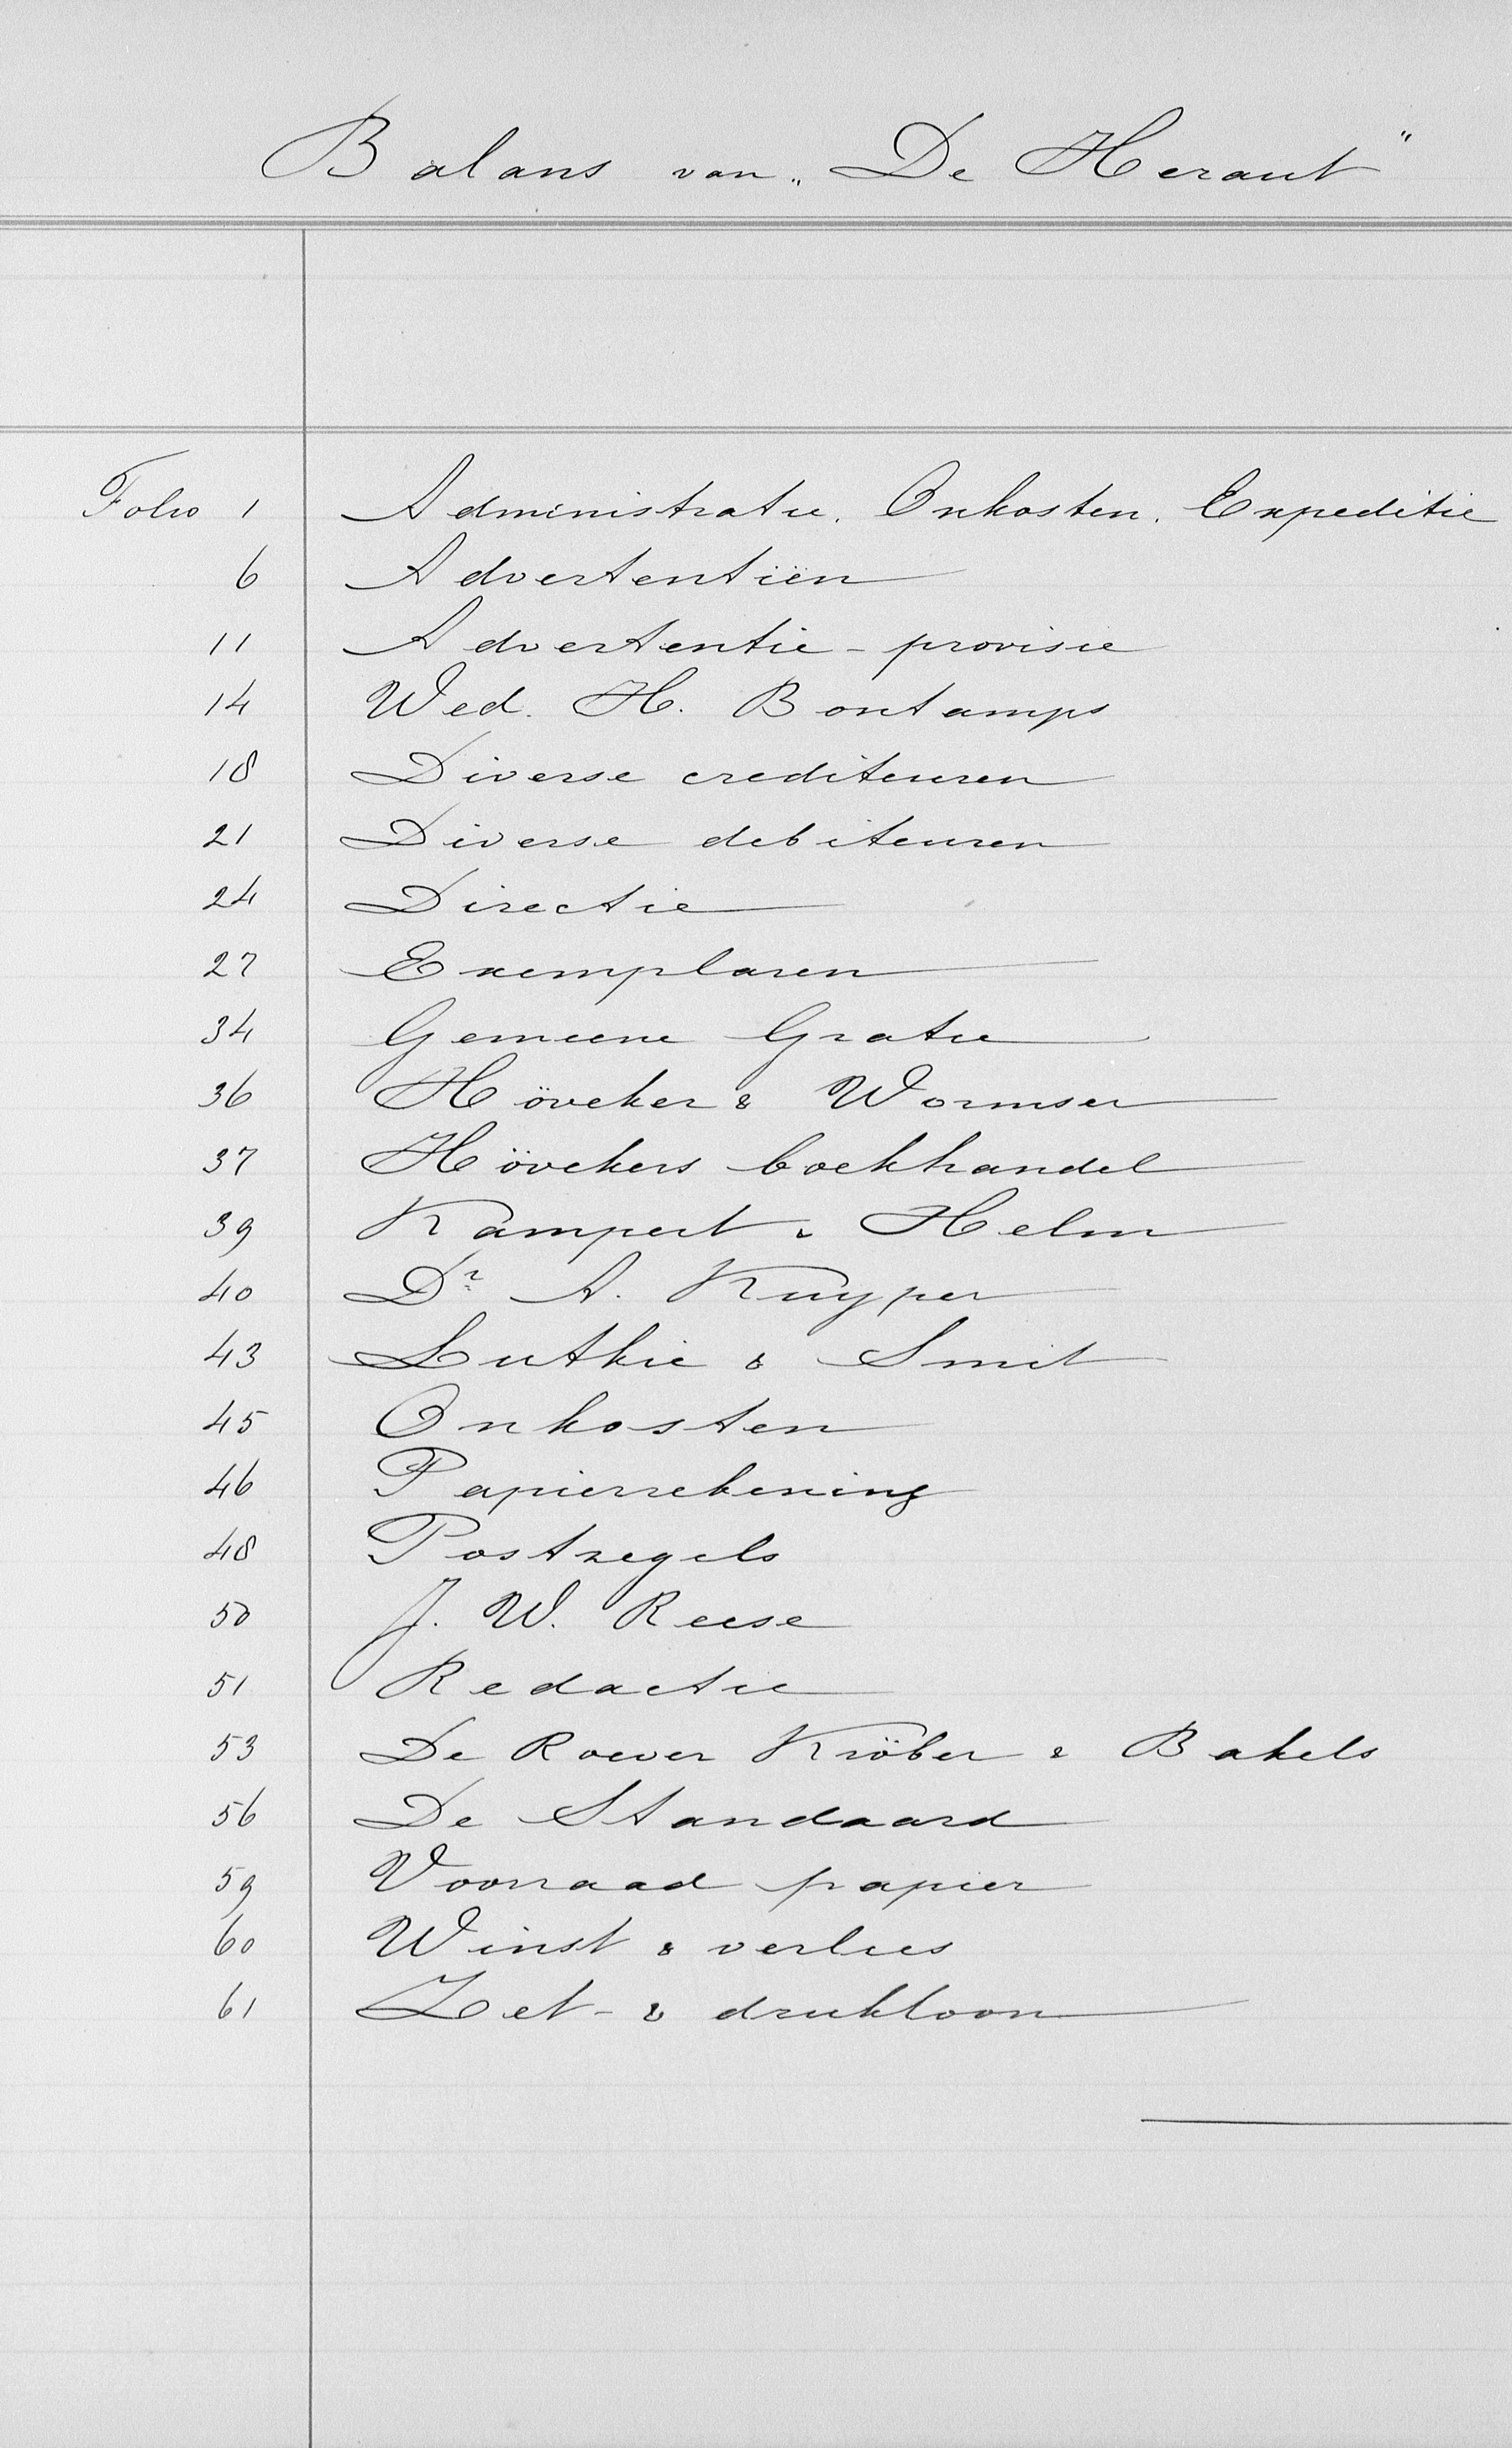 Balans van „De Heraut"
Folio 1 Administratie. Onkosten. Expeditie
6 Advertentiën
11 Advertentie-provisie
14 Wed. H. Bontamps
18 Diverse crediteuren
21 Diverse debiteuren
24 Directie
27 Exemplaren
34 Gemeene Gratie
36 Höveker & Wormser
37 Hövekers boekhandel
39 Kampert & Helm
40 Dr A. Kuyper
43 Lutkie & Smit
45 Onkosten
46 Papierrekening
48 Postzegels
50 J. W. Reese
51 Redactie
53 De Roever Kröber & Bakels
56 De Standaard
59 Voorraad papier
60 Winst & verlies
61 Zet- & drukloon